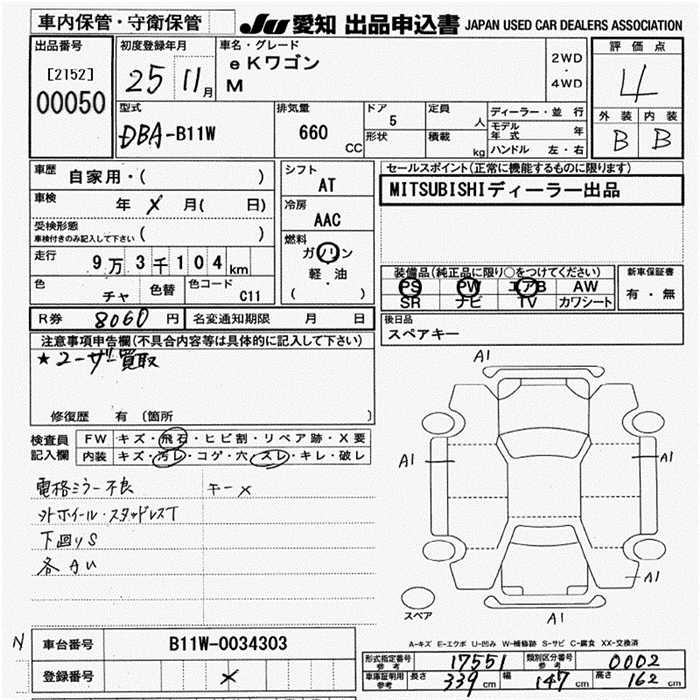 車内保管・守衛保管
JU 愛知 出品申込書 JAPAN USED CAR DEALERS ASSOCIATION
出品番号
[2152]
00050
初度登録年月
25 11月
車名・グレード
eKワゴン
M
2WD
・
4WD
評価点
4
外装 内装
B B
型式
DBA-B11W
排気量
660 CC
ドア
5
形状
定員
人
積載
kg
ディーラー・並行
モデル年式 年
ハンドル 左・右
車歴 自家用・( )
車検 年 X 月( 日)
受検形態
車検付きのみ記入して下さい ( )
走行 9万3千104km
色 チャ 色替 色コード C11
シフト
AT
冷房
AAC
燃料
ガソリン
軽・油
( )
セールスポイント(正常に機能するものに限ります)
MITSUBISHIディーラー出品
装備品(純正品に限り○をつけてください)
PS PW エアB AW
SR ナビ TV カワシート
新車保証書
有・無
R券 8060円 名変通知期限 月 日
後日品
スペアキー
注意事項申告欄(不具合内容等は具体的に記入して下さい)
★ユーザー買取
修復歴 有 (箇所 )
検査員
記入欄
FW キズ・飛石・ヒビ割・リペア跡・X要
内装 キズ・汚レ・コゲ・穴・スレ・キレ・破レ
電格ミラー不良 キーX
外ホイール・スタッドレスT
下回りS
各AU
A1
A1
A1
A1
A1
スペア
A-キズ E-エクボ U-凹み W-補修跡 S-サビ C-腐食 XX-交換済
N
車台番号 B11W-0034303
登録番号 X
形式指定番号 参考 17551 類別区分番号 参考 0002
車庫証明用 参考 長さ 339cm 幅 147cm 高さ 162cm